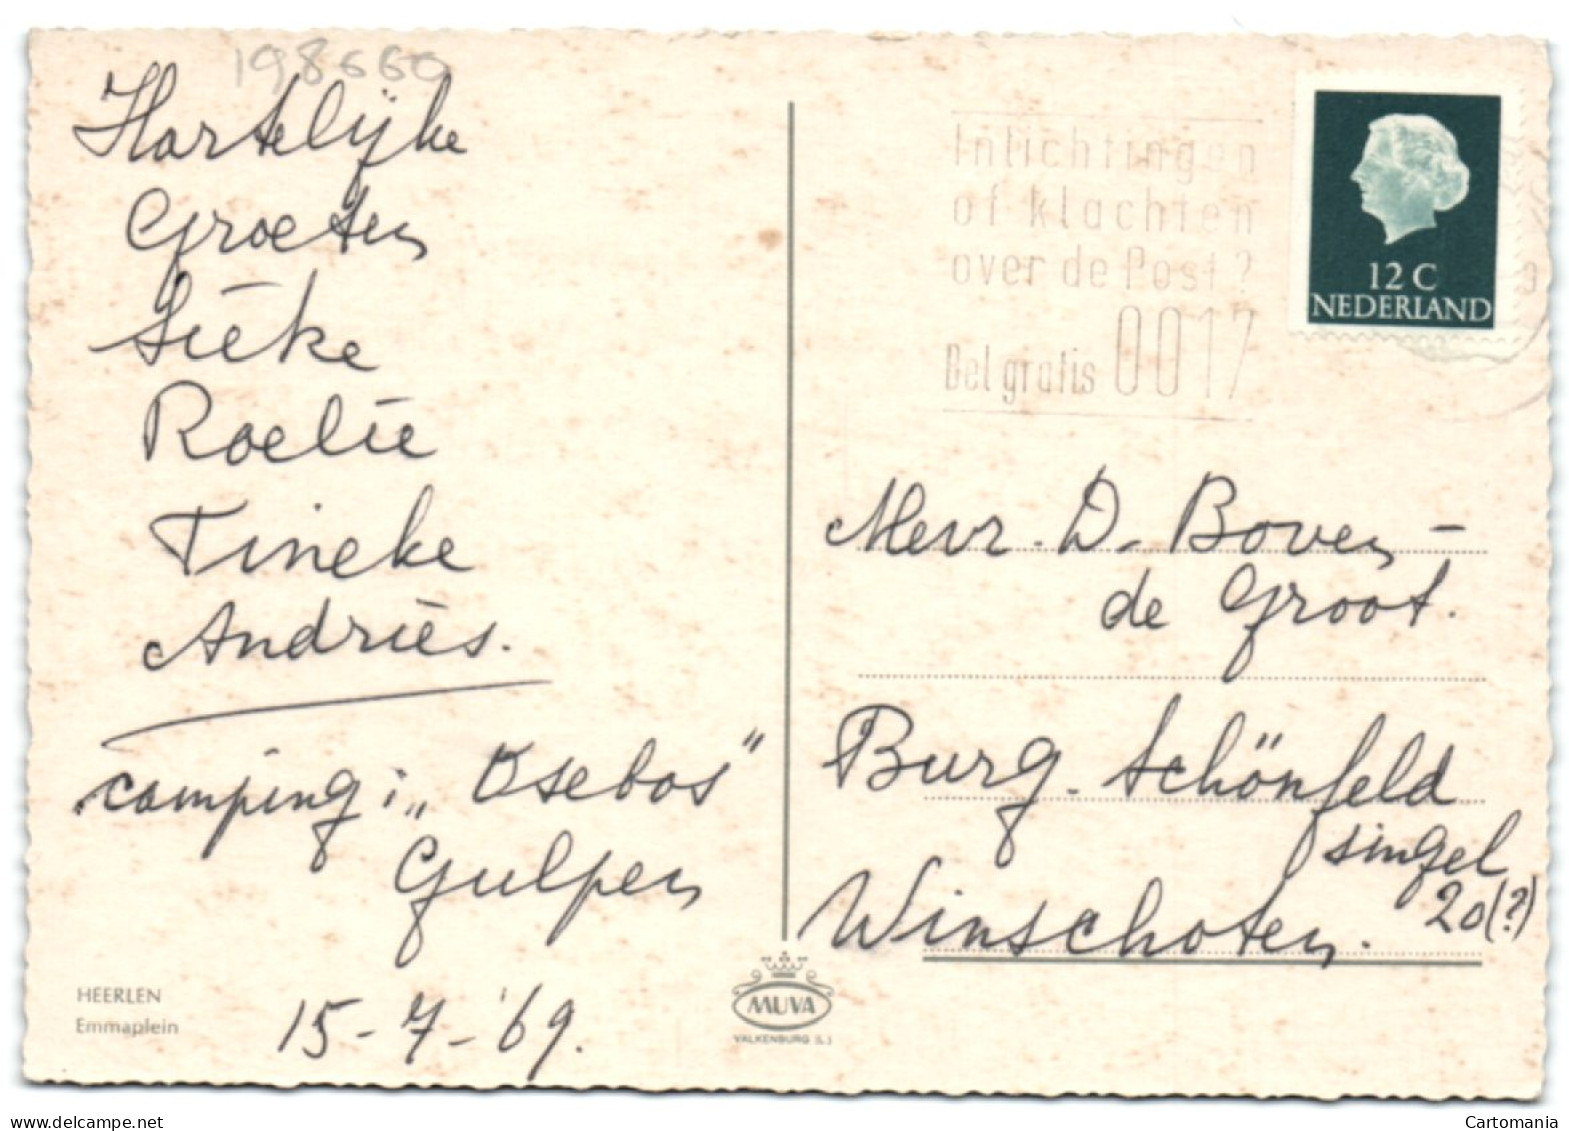 198660
Hartelijke
Groeten
Sieke
Roelie
Tineke
Andries.
camping: „Osebos"
Gulpen
15-7-'69.
HEERLEN
Emmaplein
MUVA
VALKENBURG (L.)
Inlichtingen
of klachten
over de Post?
Bel gratis 0017
12 C
NEDERLAND
Mevr. D. Boven -
de Groot.
Burg. Schönfeld
singel
20(?)
Winschoten.
www.delcampe.net
Cartomania